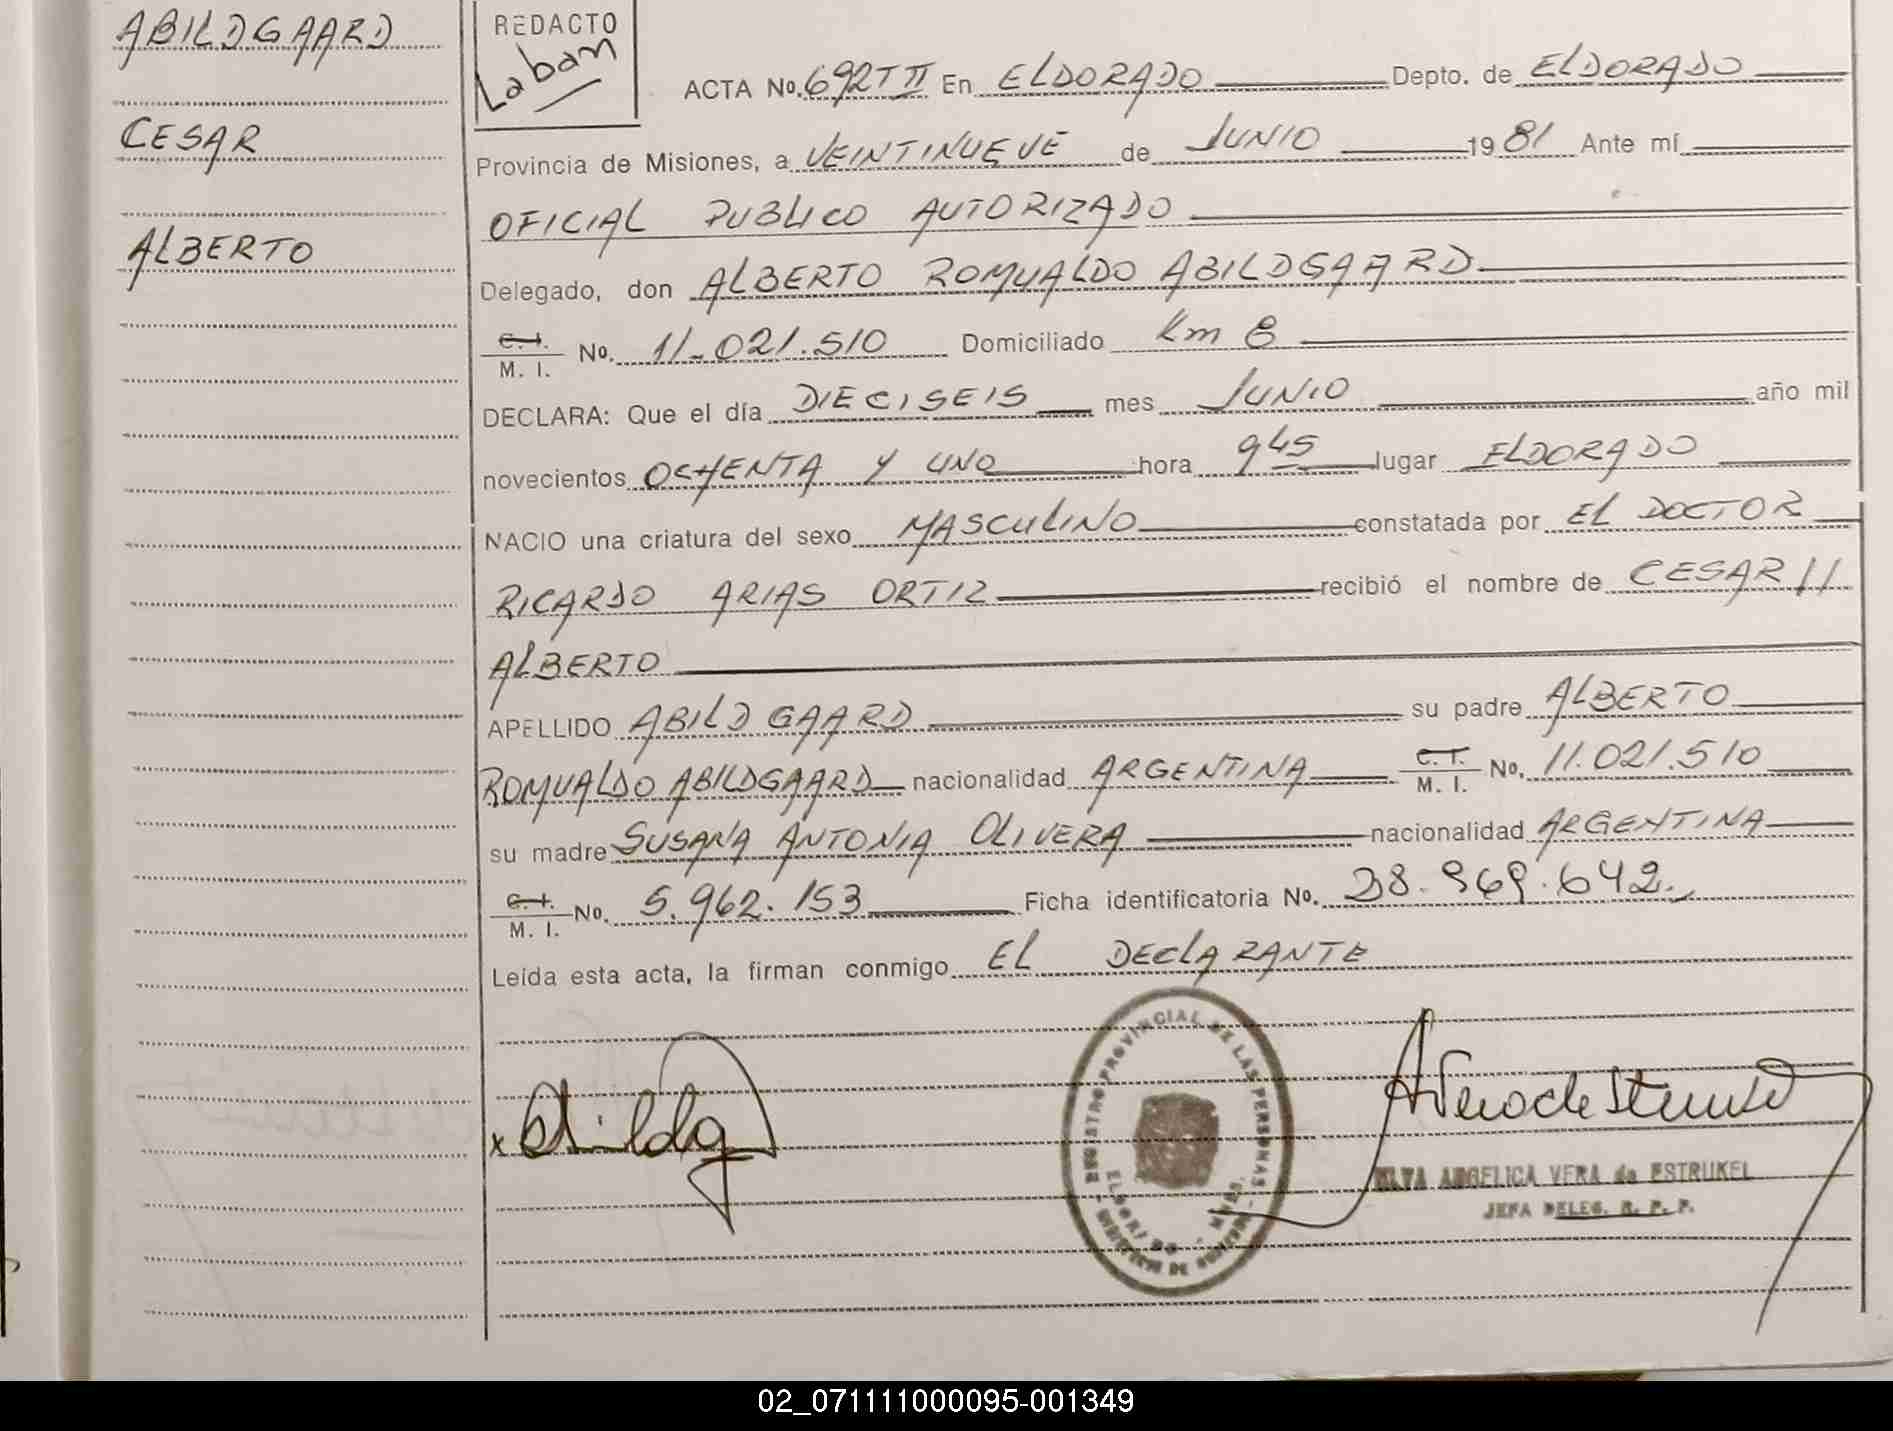 ABILDGAARD
CESAR
ALBERTO
REDACTO
Labam
ACTA No. 692 T II En ELDORADO Depto. de ELDORADO
Provincia de Misiones, a VEINTINUEVE de JUNIO 1981 Ante mí
OFICIAL PUBLICO AUTORIZADO
Delegado, don ALBERTO ROMUALDO ABILDGAARD
C. I. / M. I. No. 11.021.510 Domiciliado Km 8
DECLARA: Que el día DIECISEIS mes JUNIO año mil
novecientos OCHENTA Y UNO hora 9 45 lugar ELDORADO
NACIO una criatura del sexo MASCULINO constatada por EL DOCTOR
RICARDO ARIAS ORTIZ recibió el nombre de CESAR //
ALBERTO
APELLIDO ABILDGAARD su padre ALBERTO
ROMUALDO ABILDGAARD nacionalidad ARGENTINA C. I. / M. I. No. 11.021.510
su madre SUSANA ANTONIA OLIVERA nacionalidad ARGENTINA
C. I. / M. I. No. 5.962.153 Ficha identificatoria No. 28.969.642.
Leída esta acta, la firman conmigo EL DECLARANTE
REGISTRO PROVINCIAL DE LAS PERSONAS
ELDORADO - MNES.
MINISTERIO DE GOBIERNO
ELVA ANGELICA VERA de ESTRUKEL
JEFA DELEG. R. P. P.
02_071111000095-001349